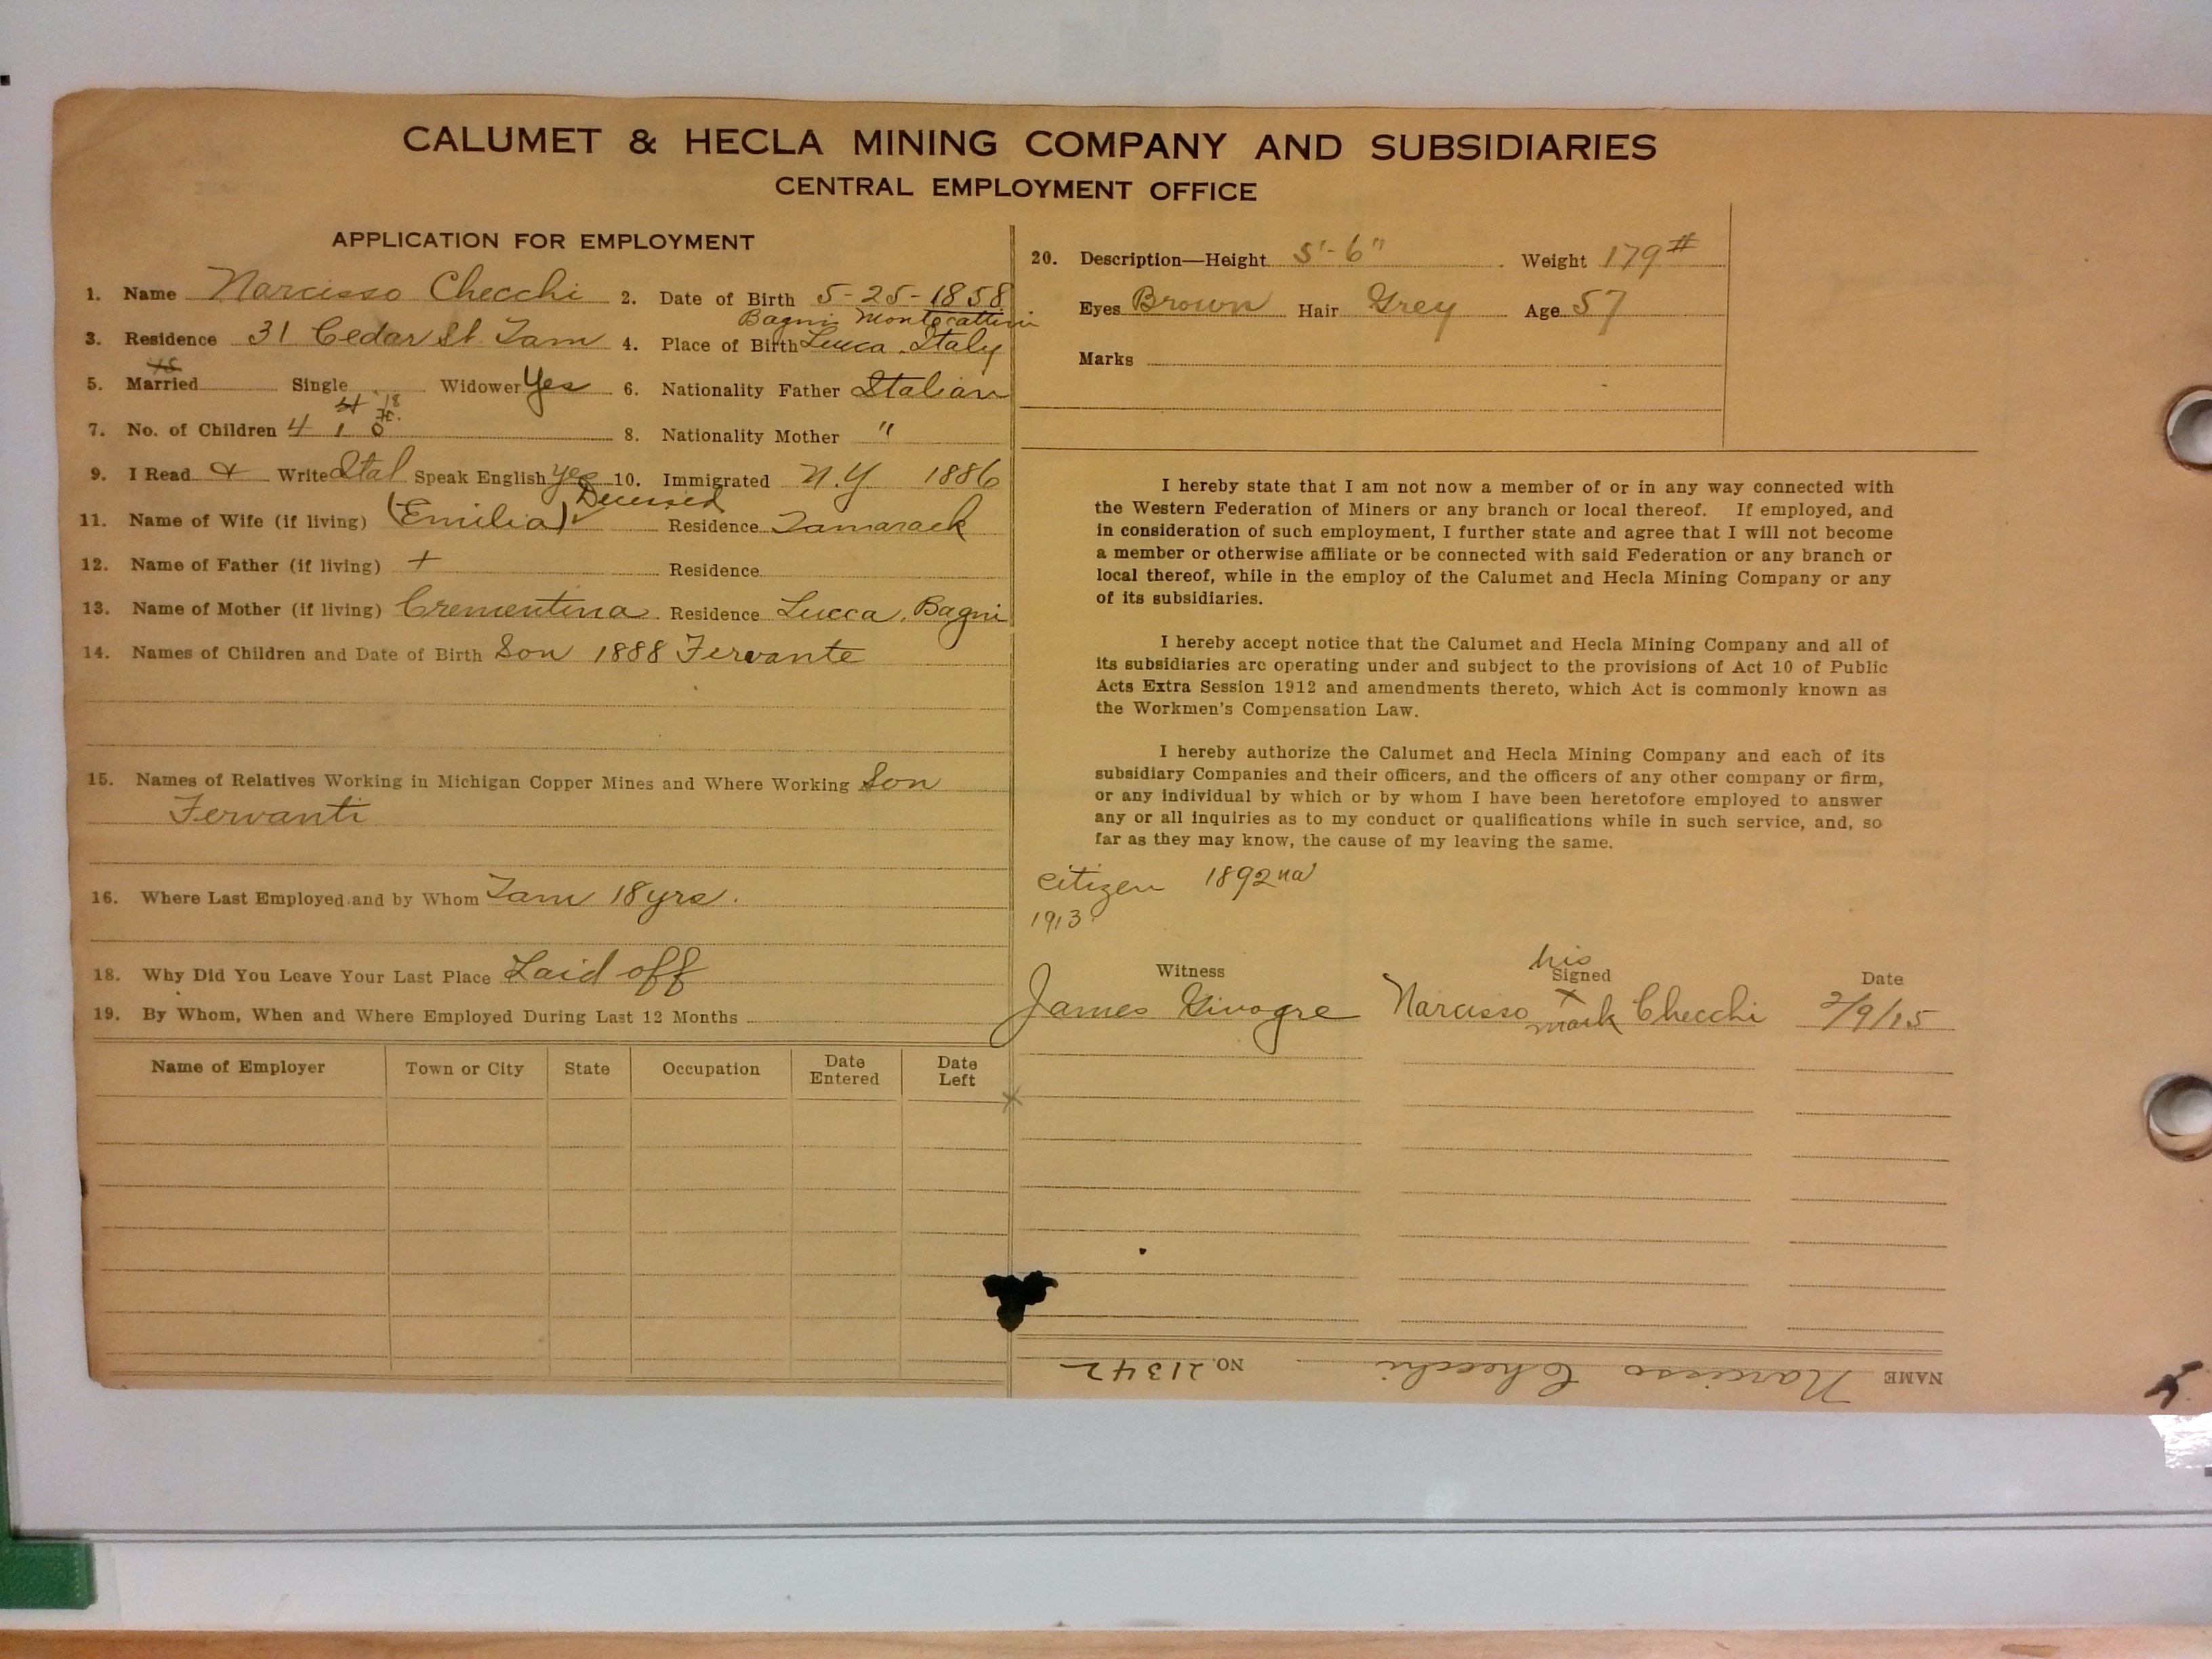 CALUMET & HECLA MINING COMPANY AND SUBSIDIARIES
CENTRAL EMPLOYMENT OFFICE
APPLICATION FOR EMPLOYMENT
1. Name Narcisso Checchi 2. Date of Birth 5-25-1858
Bagni Montecattini
3. Residence 31 Cedar St. Tam 4. Place of Birth Lucca. Italy
5. Married Single Widower Yes 6. Nationality Father Italian
18
7. No. of Children 4 1 0 8. Nationality Mother "
9. I Read & Write Ital Speak English yes 10. Immigrated N.Y 1886
Decesed
11. Name of Wife (if living) (Emilia) Residence Tamarack
12. Name of Father (if living) + Residence
13. Name of Mother (if living) Crementina. Residence Lucca. Bagni
14. Names of Children and Date of Birth Son 1888 Fervante
15. Names of Relatives Working in Michigan Copper Mines and Where Working Son
Fervanti
16. Where Last Employed and by Whom Tam 18 yrs.
18. Why Did You Leave Your Last Place Laid off
19. By Whom, When and Where Employed During Last 12 Months
Name of Employer Town or City State Occupation Date Entered Date Left
20. Description—Height 5'-6" Weight 179#
Eyes Brown Hair Grey Age 57
Marks
I hereby state that I am not now a member of or in any way connected with
the Western Federation of Miners or any branch or local thereof. If employed, and
in consideration of such employment, I further state and agree that I will not become
a member or otherwise affiliate or be connected with said Federation or any branch or
local thereof, while in the employ of the Calumet and Hecla Mining Company or any
of its subsidiaries.
I hereby accept notice that the Calumet and Hecla Mining Company and all of
its subsidiaries are operating under and subject to the provisions of Act 10 of Public
Acts Extra Session 1912 and amendments thereto, which Act is commonly known as
the Workmen's Compensation Law.
I hereby authorize the Calumet and Hecla Mining Company and each of its
subsidiary Companies and their officers, and the officers of any other company or firm,
or any individual by which or by whom I have been heretofore employed to answer
any or all inquiries as to my conduct or qualifications while in such service, and, so
far as they may know, the cause of my leaving the same.
citizen 1892
1913
his
Witness Signed Date
James Narcisso x Checchi 2/9/15
mark
NAME Narcisso Checchi NO. 21342